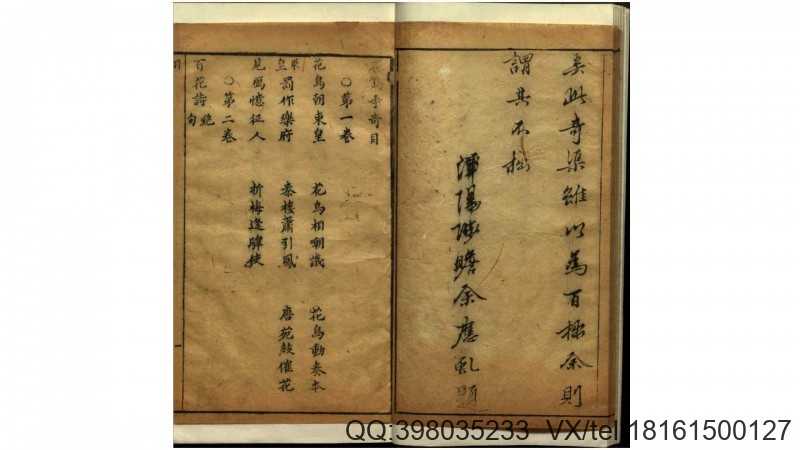 矣此奇梁雖以為百極余則
謂其不松
潭陽余應虬題
奇目
○第一卷
花鳥朝東皇 花鳥相嘲謔 花鳥動奏本
罰作樂府 秦樓蕭引鳳 唐苑鼓催花
見鴈憶征人 折梅逢驛使
○第二卷
百花詩絕句
QQ:398035233 VX/tel:18161500127